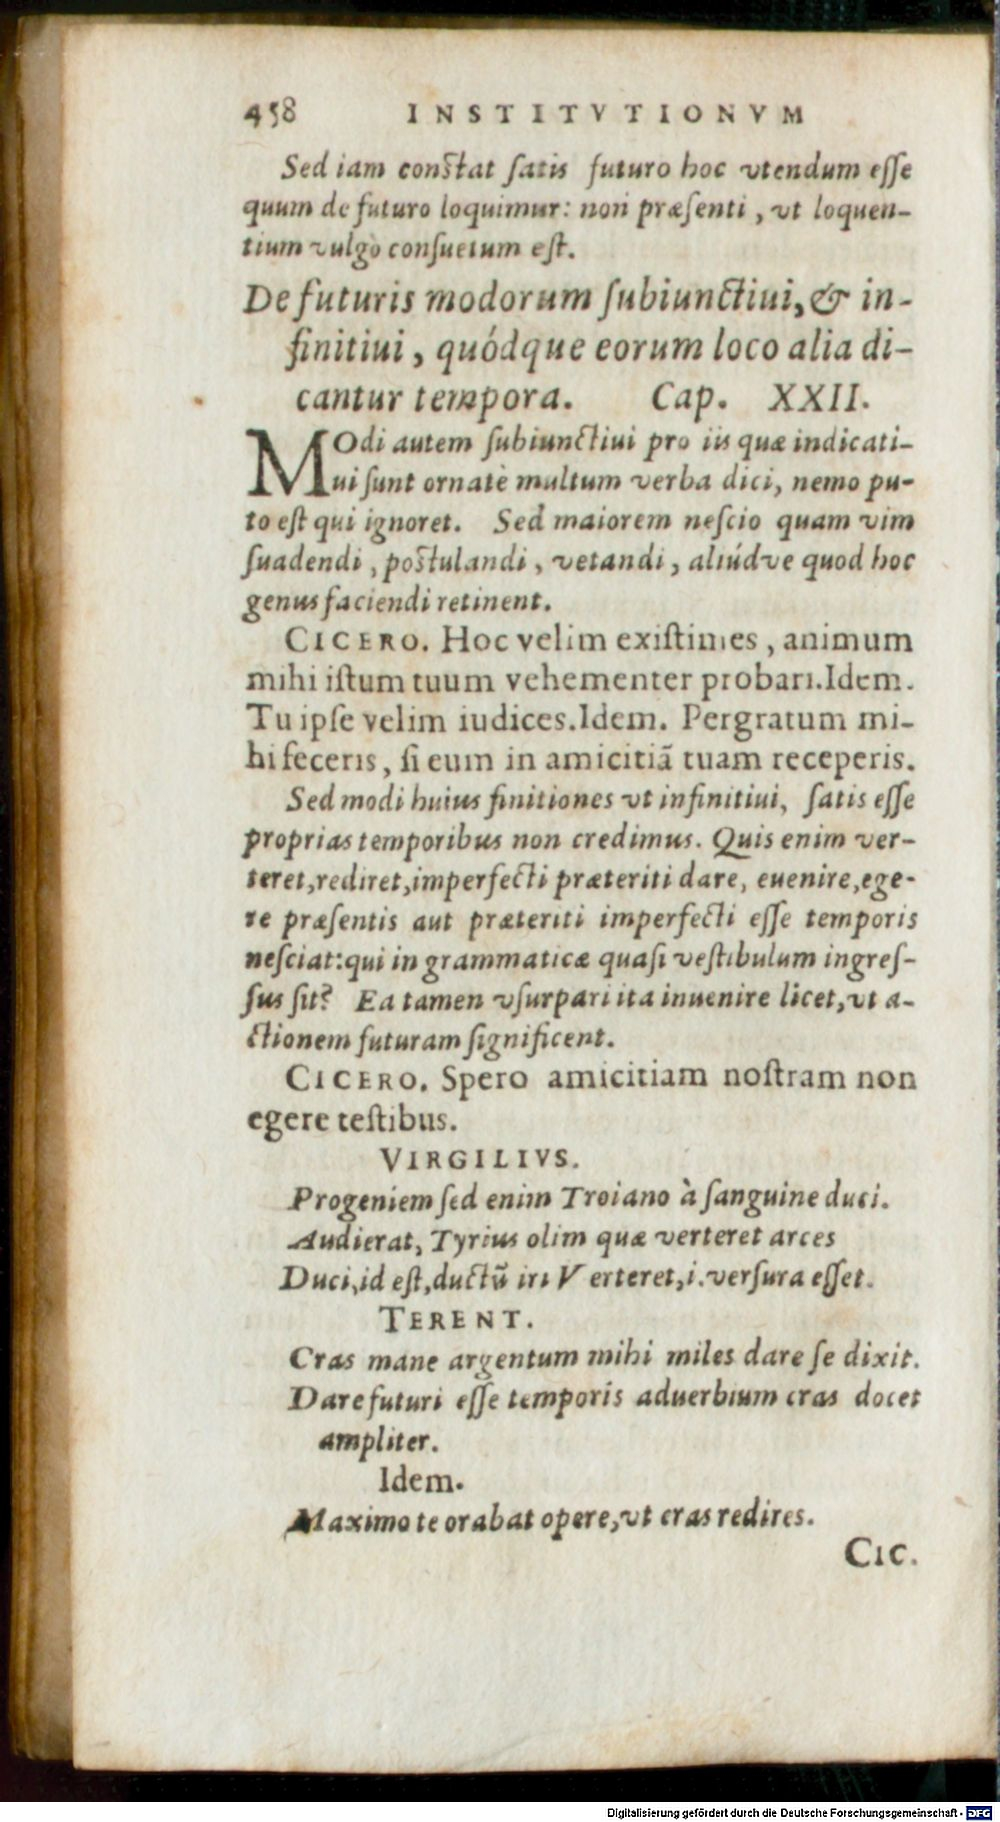 458 INSTITVTIONVM
Sed iam constat satis futuro hoc vtendum esse
quum de futuro loquimur: non præsenti, vt loquen-
tium vulgò consuetum est.
De futuris modorum subiunctiui, & in-
finitiui, quódque eorum loco alia di-
cantur tempora. Cap. XXII.
MOdi autem subiunctiui pro iis quæ indicati-
ui sunt ornatè multum verba dici, nemo pu-
to est qui ignoret. Sed maiorem nescio quam vim
suadendi, postulandi, vetandi, aliúdve quod hoc
genus faciendi retinent.
CICERO. Hoc velim existimes, animum
mihi istum tuum vehementer probari. Idem.
Tu ipse velim iudices. Idem. Pergratum mi-
hi feceris, si eum in amicitiã tuam receperis.
Sed modi huius finitiones vt infinitiui, satis esse
proprias temporibus non credimus. Quis enim ver-
teret, rediret, imperfecti præteriti dare, euenire, ege-
re præsentis aut præteriti imperfecti esse temporis
nesciat: qui in grammaticæ quasi vestibulum ingres-
sus sit? Ea tamen vsurpari ita inuenire licet, vt a-
ctionem futuram significent.
CICERO. Spero amicitiam nostram non
egere testibus.
VIRGILIVS.
Progeniem sed enim Troiano à sanguine duci.
Audierat, Tyrius olim quæ verteret arces
Duci, id est, ductũ iri Verteret, i. versura esset.
TERENT.
Cras mane argentum mihi miles dare se dixit.
Dare futuri esse temporis aduerbium cras docet
ampliter.
Idem.
Maximo te orabat opere, vt cras redires.
CIC.
Digitalisierung gefördert durch die Deutsche Forschungsgemeinschaft - DFG